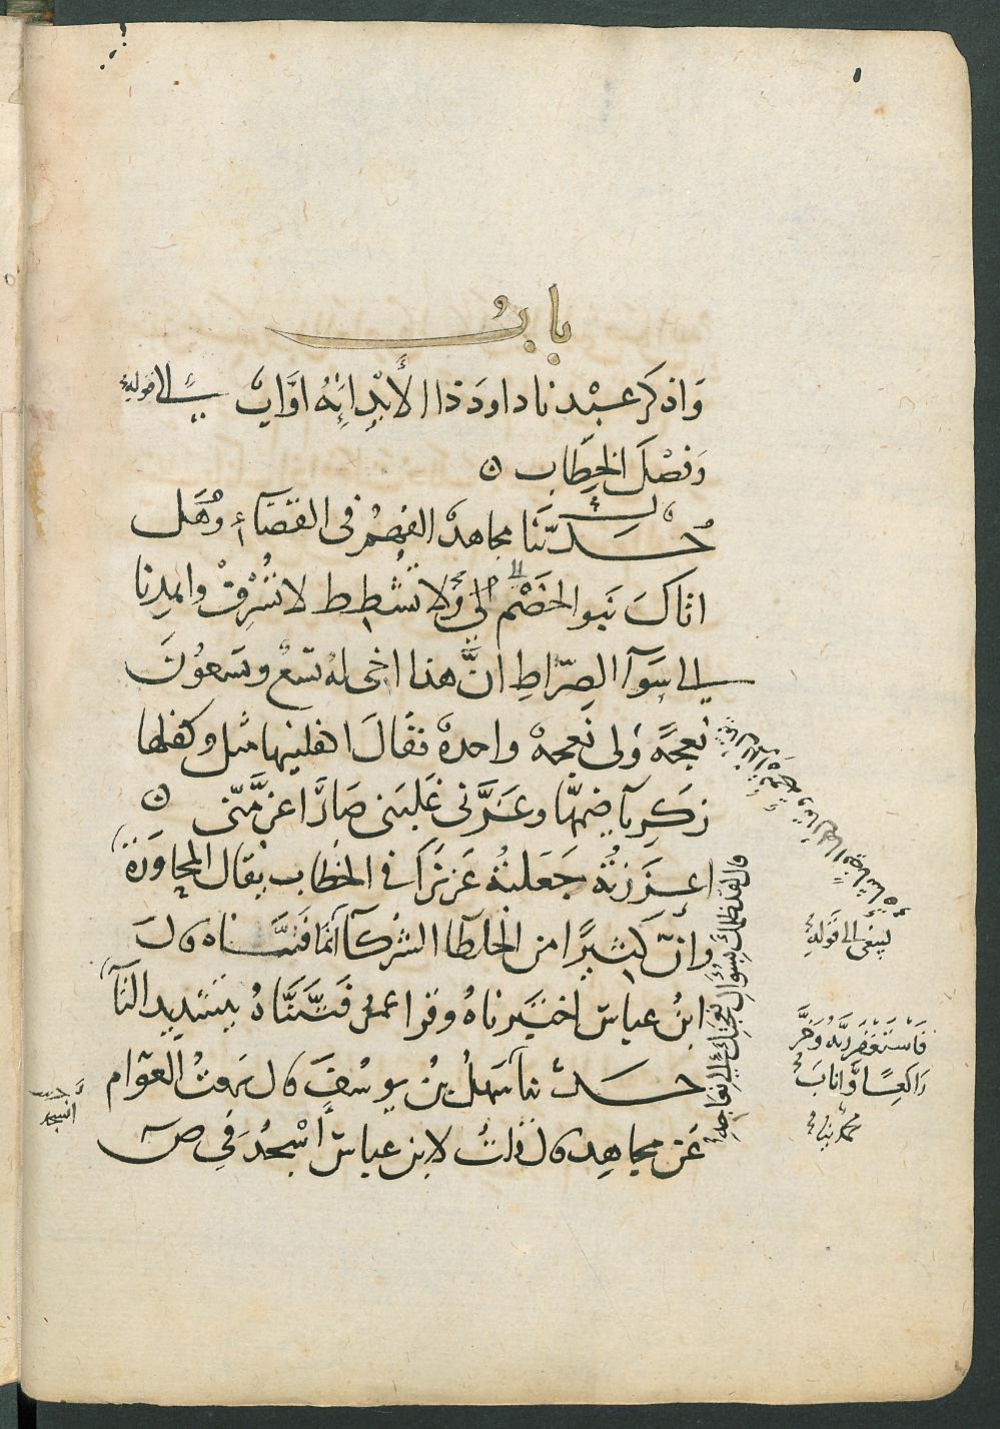 باب
وَاذكَر عبْدنا داودَ ذا الأَيْدِ اِنَّهُ اوَّابٌ الى قوله
وَفَصْلَ الخِطَابِ
حَدَّثَنَا مجاهدٌ الفهمُ فى القضآء وَهَل
اتاكَ نَبَؤا الخَصْمِ الى وَلا تشْطِط لا تُسْرِفْ واهدِنا
الى سَوَآ الصِّرَاطِ انَّ هذا اخى لهُ تسعٌ وتسعونَ
نعجةً وَلى نعجةٌ واحدةٌ فقالَ اكفلنيها مثل وكفلها
زكَرِيآ ضمّها وعَزَّنى غَلبَنى صَارَ اعزَّ مِنّى
اعزَزتهُ جَعَلتهُ عَزيزًا فى الخطاب يقال المحاورَة
وانّ كثيرًا من الخلطا الشركآ انما فتنَّاه قال
ابنُ عباسٍ اختبرناهُ وقرا عمرُ فَتَّنَّاهُ بتشديد التآ
حَدثنا سَهلُ بنُ يوسُفَ قال سمعتُ العوّام
عَن مجاهدٍ قال قلتُ لابن عباسٍ أسْجُدُ فى ص
قال لقد ظلمكَ بسُؤالِ نعجتكَ الى نعاجه
ليبغى الى قوله
فَاستَغفر رَبَّهُ وَخَرَّ
رَاكعًا وَّانابَ
أنسجد